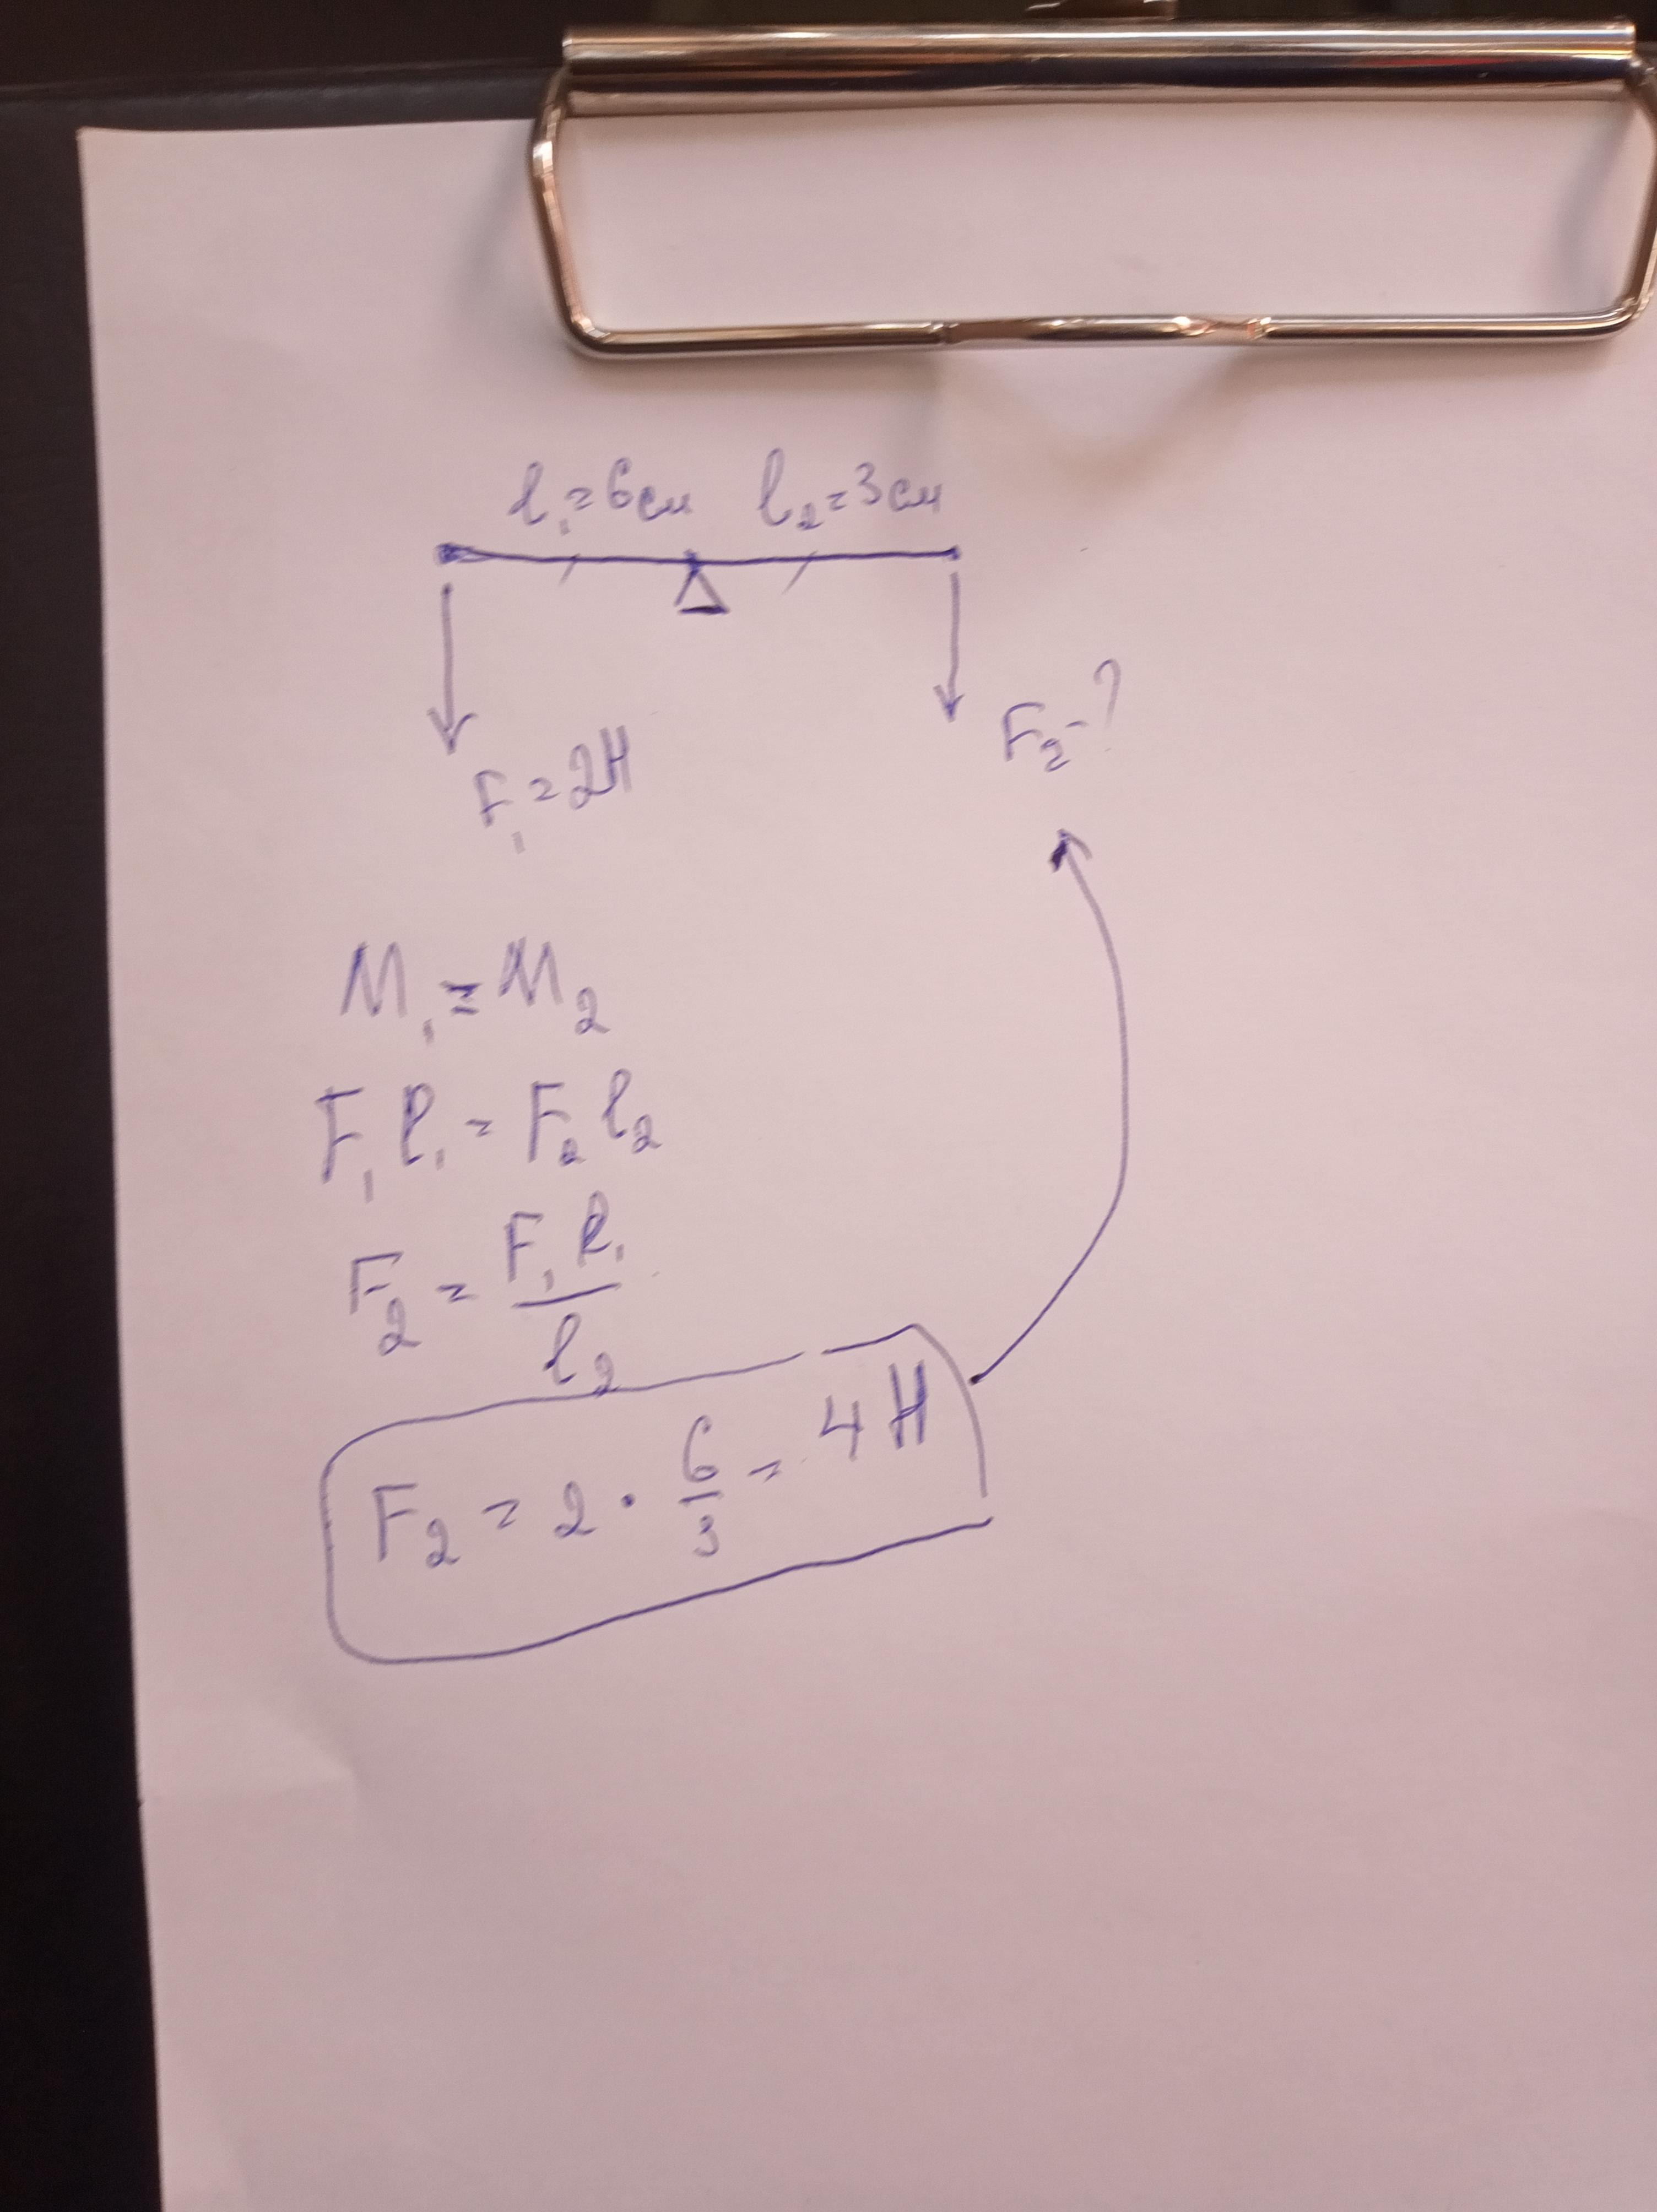 l₁=6см l₂=3см
F₁=2Н
F₂-?
M₁=M₂
F₁l₁=F₂l₂
F₂=F₁l₁/l₂
F₂=2·6/3=4Н